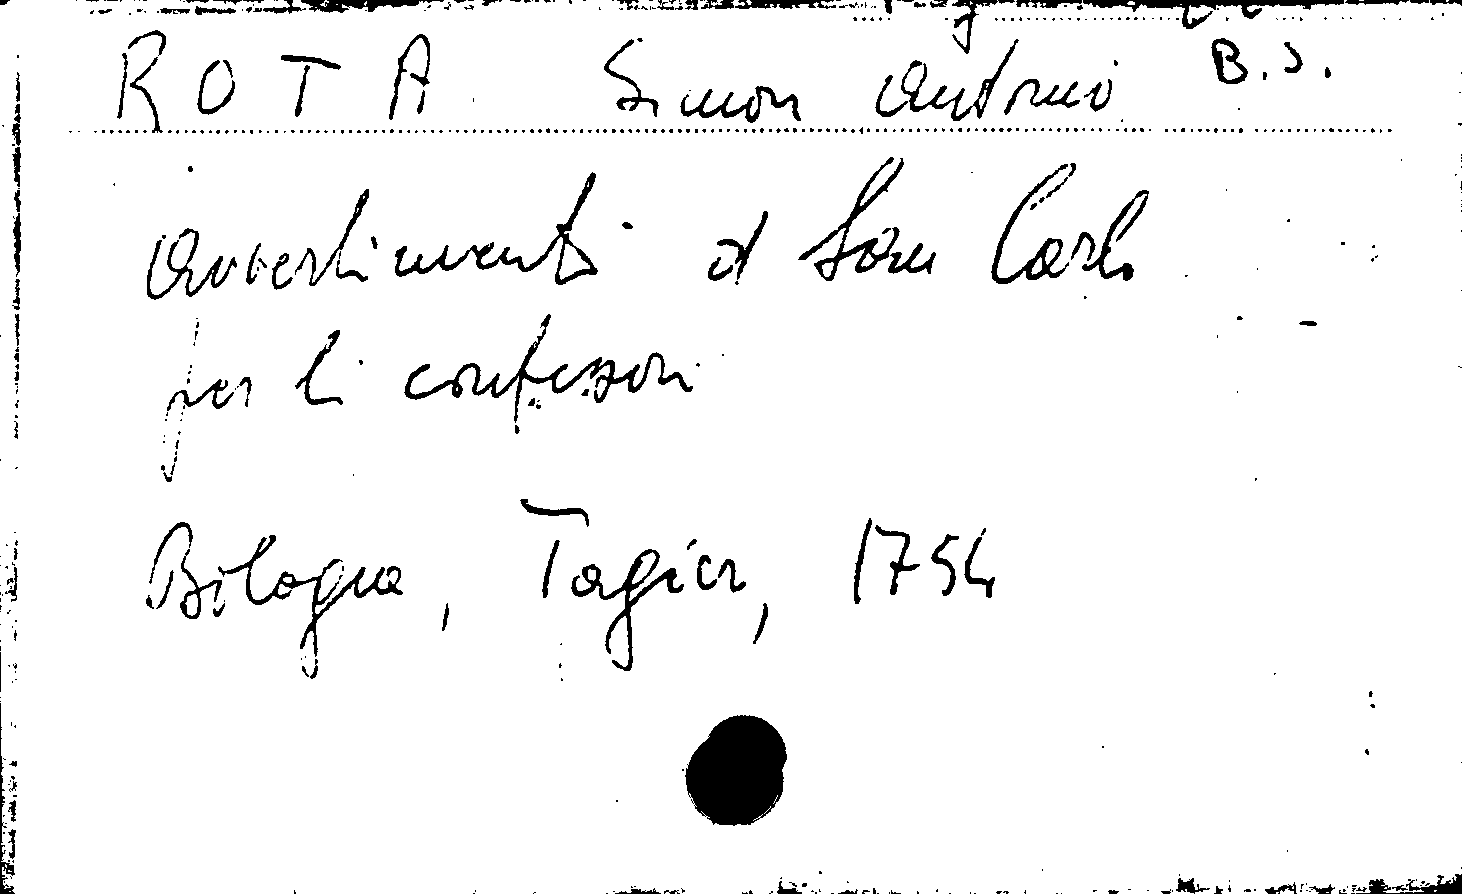 ROTA Simon Antonio B.S.
Avvertimenti d San Carlo
per li confessori
Bologna, Tagier, 1754